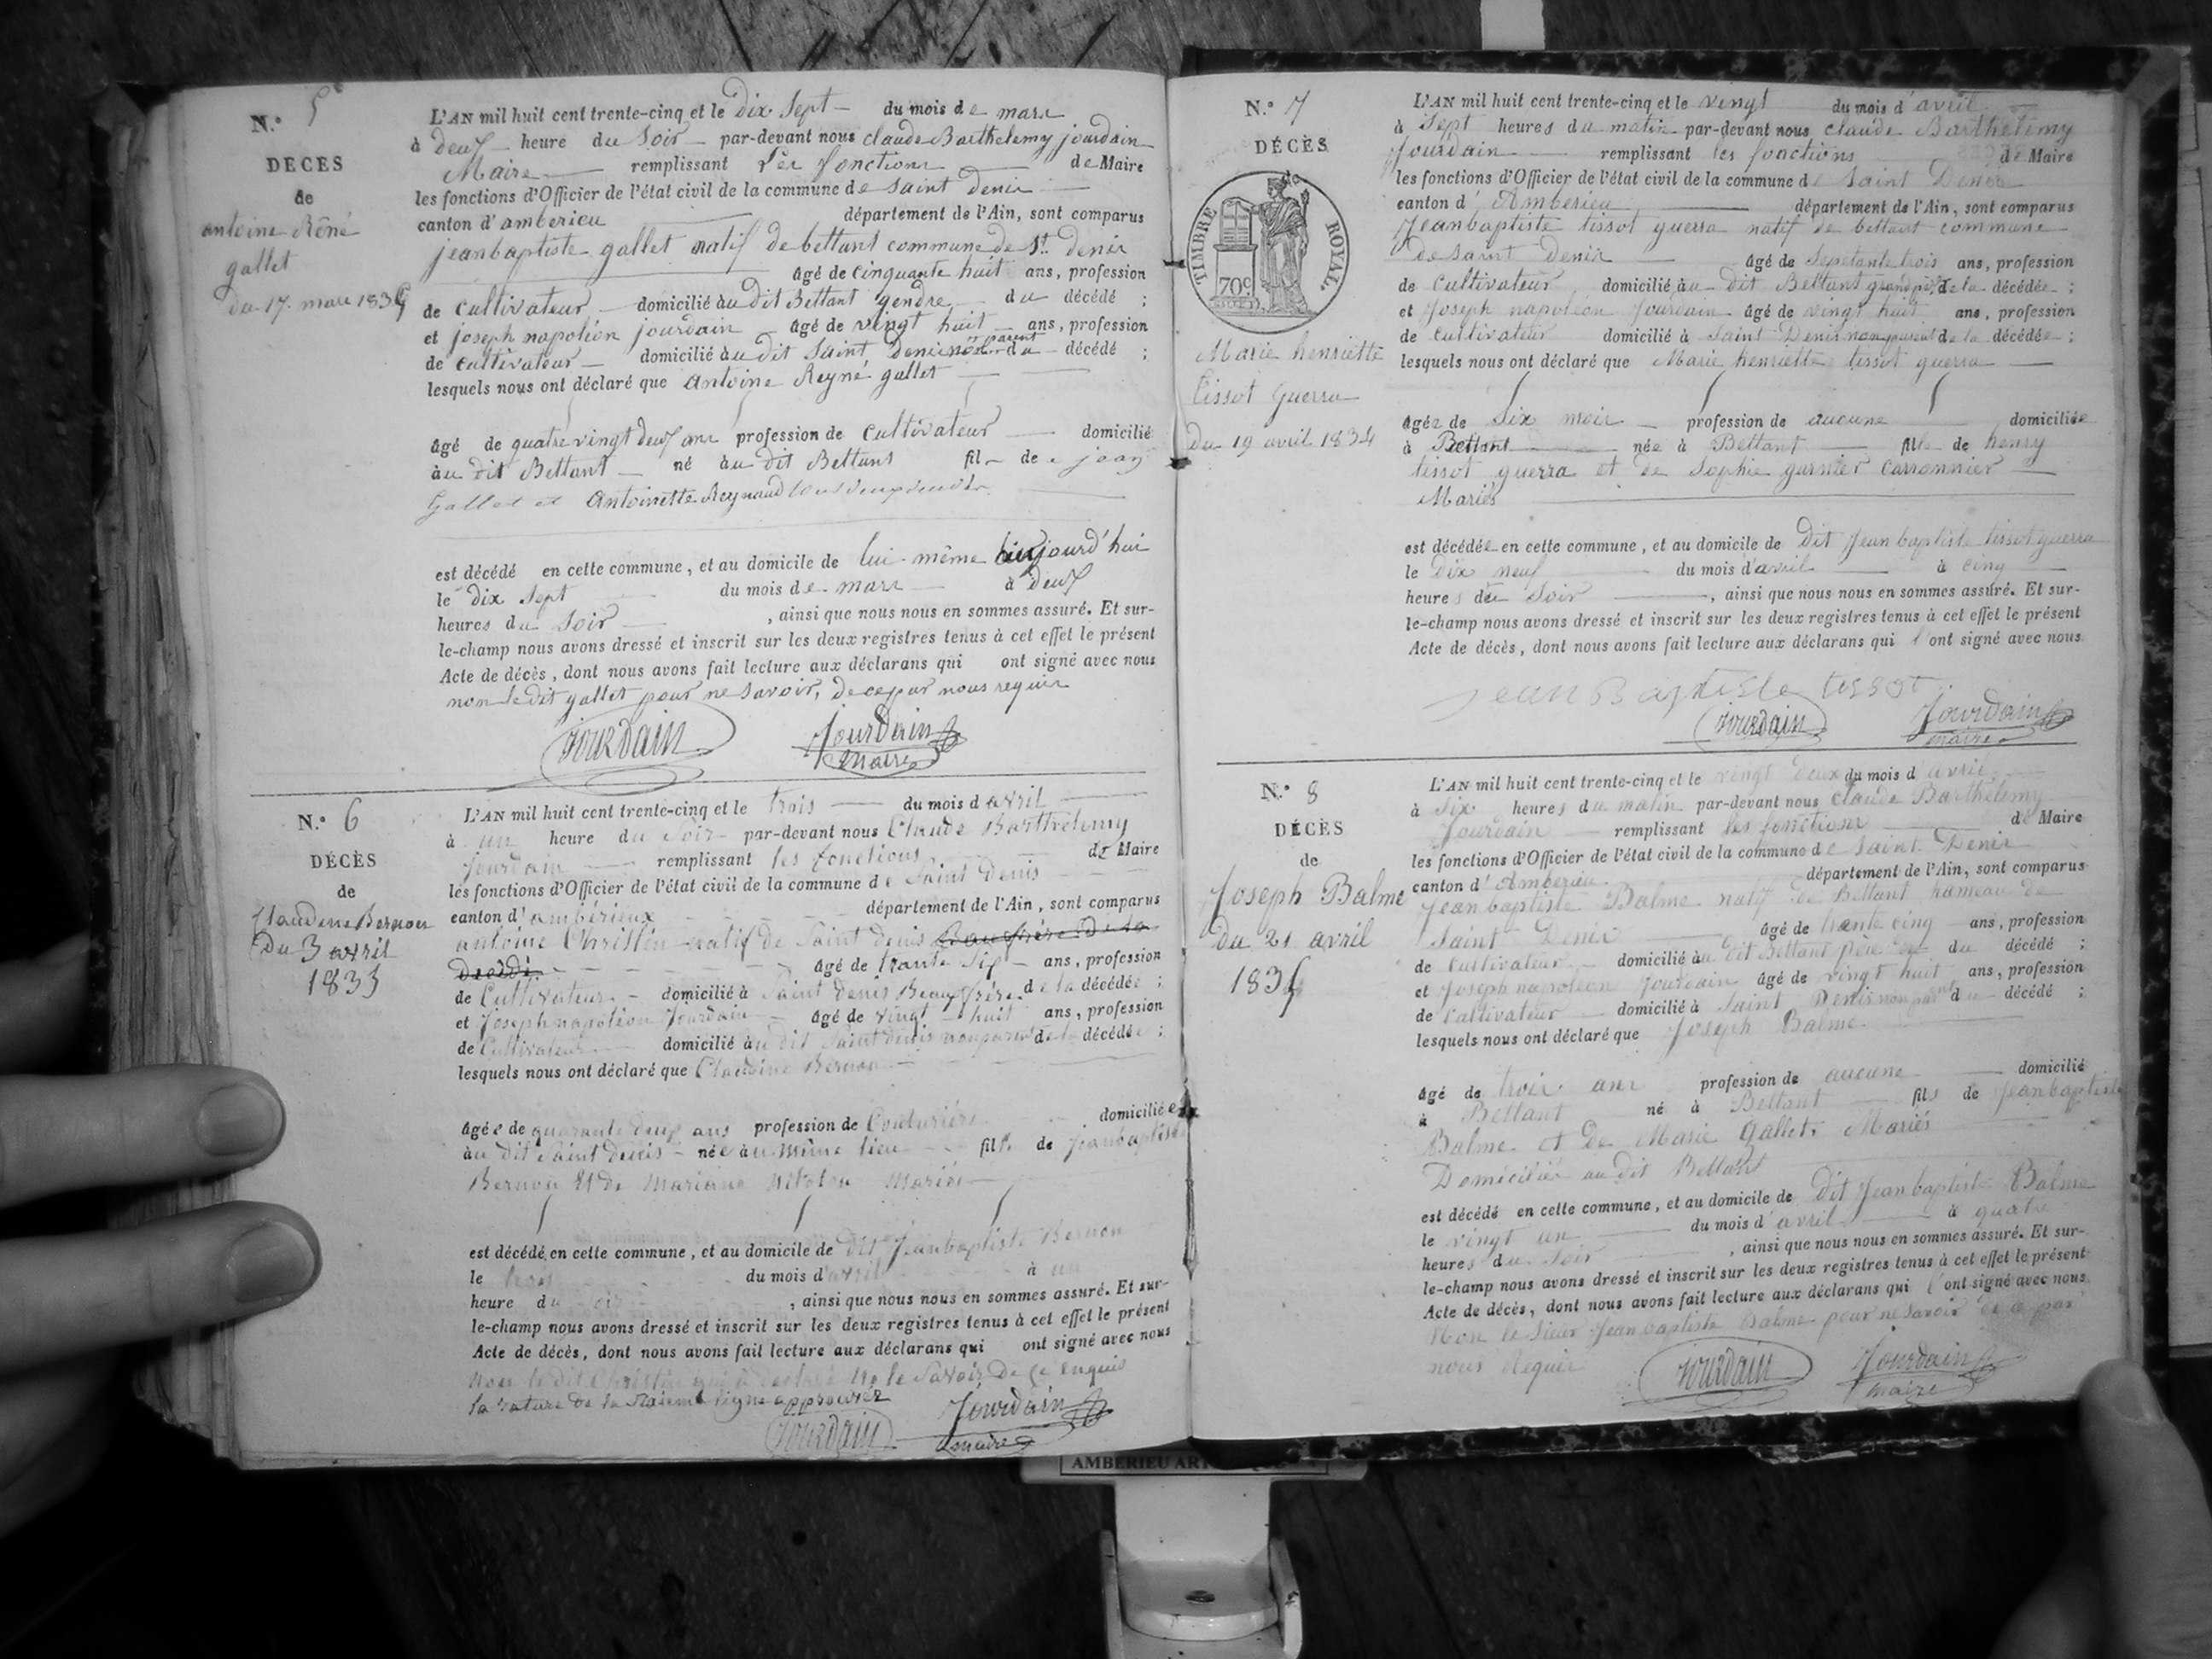 N.° 5
DECES
de
antoine Réné
gallet
du 17. mars 1835
L'AN mil huit cent trente-cinq et le dix Sept du mois de mars
à deux heure du Soir par-devant nous claude Barthelemy jourdain
Maire remplissant les fonctions de Maire
les fonctions d'Officier de l'état civil de la commune de saint denis
canton d'amberieu département de l'Ain, sont comparus
jeanbaptiste gallet natif de bettant commune de St. denis
âgé de Cinquante huit ans, profession
de Cultivateur domicilié au dit Bettant gendre du décédé ;
et joseph napoléon jourdain âgé de vingt huit ans, profession
de Cultivateur domicilié au dit Saint Denis non parent du décédé ;
lesquels nous ont déclaré que Antoine Reyné gallet
âgé de quatre vingt deux ans profession de Cultivateur domicilié
au dit Bettant né au dit Bettant fil de jean
Gallet et Antoinette Reynaud
est décédé en cette commune, et au domicile de lui-même aujourd'hui
le dix Sept du mois de mars à deux
heures du Soir , ainsi que nous nous en sommes assuré. Et sur-
le-champ nous avons dressé et inscrit sur les deux registres tenus à cet effet le présent
Acte de décès, dont nous avons fait lecture aux déclarans qui ont signé avec nous
non le dit gallet pour ne Savoir, de ce par nous requis
Jourdain Jourdain
maire
N.° 6
DÉCÈS
de
Claudine Bernon
Du 3 avril
1835
L'AN mil huit cent trente-cinq et le trois du mois d avril
à un heure du Soir par-devant nous Claude Barthelemy
Jourdain remplissant les fonctions de Maire
les fonctions d'Officier de l'état civil de la commune de Saint Denis
canton d'ambérieux département de l'Ain, sont comparus
antoine Christin natif de Saint denis Beaufrère De La
Décédé âgé de trante Six ans, profession
de Cultivateur domicilié à Saint Denis Beaufrère de la décédée ;
et Joseph napoléon Jourdain âgé de vingt huit ans, profession
de Cultivateur domicilié au dit Saint denis non parent de la décédée ;
lesquels nous ont déclaré que Claudine Bernon
âgée de quarante deux ans profession de Couturière domiciliée
au dit Saint Denis née au même lieu fille de Jeanbaptiste
Bernon Et de Mariane Mariés
est décédé en cette commune, et au domicile de dit Jeanbaptiste Bernon
le trois du mois d'avril à un
heure du soir , ainsi que nous nous en sommes assuré. Et sur-
le-champ nous avons dressé et inscrit sur les deux registres tenus à cet effet le présent
Acte de décès, dont nous avons fait lecture aux déclarans qui ont signé avec nous
Non le dit Christin qui a déclaré ne le Savoir De ce enquis
la rature de la ligne approuvée
Jourdain Jourdain
maire
N.° 7
DÉCÈS
TIMBRE ROYAL
70c
Marie henriette
tissot Guerra
Du 19 avril 1834
L'AN mil huit cent trente-cinq et le vingt du mois d'avril
à Sept heures du matin par-devant nous claude Barthelemy
Jourdain remplissant les fonctions de Maire
les fonctions d'Officier de l'état civil de la commune de Saint Denis
canton d'Amberieu département de l'Ain, sont comparus
Jeanbaptiste tissot guerra natif de bettant commune
de Saint Denis âgé de Septante trois ans, profession
de Cultivateur domicilié au dit Bettant grand père de la décédée ;
et Joseph napoléon Jourdain âgé de vingt huit ans, profession
de Cultivateur domicilié à Saint Denis non parent de la décédée ;
lesquels nous ont déclaré que Marie henriette tissot guerra
âgée de Six mois profession de aucune domiciliée
à Bettant née à Bettant fille de henry
tissot guerra et de Sophie garnier carronnier
Mariés
est décédée en cette commune, et au domicile de Dit Jean baptiste tissot guerra
le Dix neuf du mois d'avril à cinq
heures du Soir , ainsi que nous nous en sommes assuré. Et sur-
le-champ nous avons dressé et inscrit sur les deux registres tenus à cet effet le présent
Acte de décès, dont nous avons fait lecture aux déclarans qui l'ont signé avec nous
Jean Baptiste tissot
Jourdain Jourdain
maire
N.° 8
DÉCÈS
de
Joseph Balme
du 21 avril
1835
L'AN mil huit cent trente-cinq et le vingt deux du mois d'avril
à Six heures du matin par-devant nous claude Barthelemy
Jourdain remplissant les fonctions de Maire
les fonctions d'Officier de l'état civil de la commune de Saint Denis
canton d'Amberieu département de l'Ain, sont comparus
Jeanbaptiste Balme natif de Bettant hameau de
Saint Denis âgé de trente cinq ans, profession
de Cultivateur domicilié au dit Bettant père du décédé ;
et Joseph napoléon Jourdain âgé de vingt huit ans, profession
de Cultivateur domicilié à Saint Denis non parent du décédé ;
lesquels nous ont déclaré que Joseph Balme
âgé de trois ans profession de aucune domicilié
à Bettant né à Bettant fils de Jeanbaptiste
Balme et de Marie Gallet, Mariés
Domiciliés au dit Bettant
est décédé en cette commune, et au domicile de dit Jeanbaptiste Balme
le vingt un du mois d'avril à quatre
heures du Soir , ainsi que nous nous en sommes assuré. Et sur-
le-champ nous avons dressé et inscrit sur les deux registres tenus à cet effet le présent
Acte de décès, dont nous avons fait lecture aux déclarans qui l'ont signé avec nous
Non le Sieur Jeanbaptiste Balme pour ne Savoir de ce par
nous Requis
Jourdain Jourdain
maire
AMBERIEU